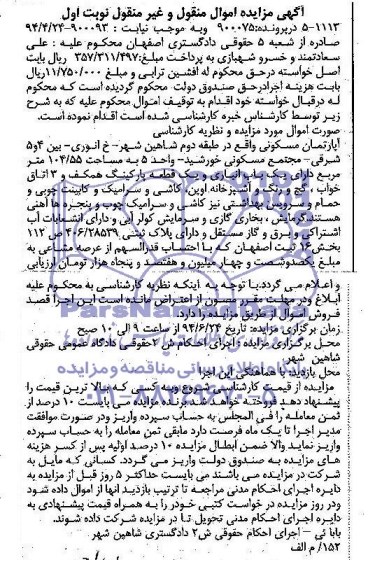 آگهی مزایده اموال منقول و غیر منقول نوبت اول
۵-۱۱۱۳ درپرونده:۹۰۰۰۷۵ وبه موجب نیابت : ۹۰۰۰۹۳-۹۴/۴/۲۴
صادره از شعبه ۵ حقوقی دادگستری اصفهان محکوم علیه : علی
سعادتمند و خسرو شهبازی به پرداخت مبلغ:۳۵۷/۳۱۱/۴۹۷ ریال بابت
اصل خواسته درحق محکوم له افشین ترابی و مبلغ ۱۱/۷۵۰/۰۰۰ریال
بابت هزینه اجرادرحق صندوق دولت محکوم گردیده است که محکوم
له درقبال خواسته خود اقدام به توقیف اموال محکوم علیه که به شرح
زیر توسط کارشناس خبره کارشناسی شده است اقدام نموده است.
صورت اموال مورد مزایده و نظریه کارشناسی
آپارتمان مسکونی واقع در طبقه دوم شاهین شهر- خ انوری- بین ۴و۵
شرقی- مجتمع مسکونی خورشید- واحد ۵ به مساحت ۱۰۴/۵۵ متر
مربع دارای یک باب انباری ویک قطعه پارکینگ همکف و ۳ اتاق
خواب ، گچ و رنگ و آشپزخانه اوپن، کاشی و سرامیک و کابینت چوبی و
حمام و سرویس بهداشتی نیز کاشی و سرامیک درب چوب و پنجره ها آهنی
هستند.گرمایش ، بخاری گازی و سرمایش کولر آبی و دارای انشعابات آب
اشتراکی و برق و گاز مستقل و دارای پلاک ثبتی ۴۰۶/۲۸۵۳۹ ص ۱۱۲
بخش۱۶ ثبت اصفهان که با احتساب قدرالسهم از عرصه مشاعی به
مبلغ یکصدوبیست و چهار میلیون و هفتصد و پنجاه هزار تومان ارزیابی
و اعلام می گردد.با توجه به اینکه نظریه کارشناسی به محکوم علیه
ابلاغ ودر مهلت مقرر مصون از اعتراض مانده است این اجرا قصد
فروش اموال از طریق مزایده را دارد.
زمان برگزاری مزایده: تاریخ ۹۴/۶/۲۴ از ساعت ۹ الی ۱۰ صبح
محل برگزاری مزایده : اجرای احکام ش ۲حقوقی دادگاه عمومی حقوقی
شاهین شهر
محل بازدید: با هماهنگی این اجرا
مزایده از قیمت کارشناسی شروع وبه کسی که بالا ترین قیمت را
پیشنهاد دهد فروخته خواهد شد.برنده مزایده می بایست ۱۰ درصد از
ثمن معامله را فی المجلس به حساب سپرده واریز ودر صورت موافقت
مدیر اجرا تا یک ماه فرصت دارد مابقی ثمن معامله را به حساب سپرده
واریز نماید والا ضمن ابطال مزایده ۱۰ درصد اولیه پس از کسر هزینه
های مزایده به صندوق دولت واریز می گردد. کسانی که مایل به
شرکت در مزایده می باشند می بایست حداکثر ۵ روز قبل از مزایده به
دایره اجرای احکام مدنی مراجعه تا ترتیب بازدید انها از اموال داده شود
ودر روز مزایده در خواست کتبی خود را به همراه قیمت پیشنهادی به
دایره اجرای احکام مدنی تحویل تا در مزایده شرکت داده شوند.
بابا ئی - اجرای احکام حقوقی ش۲ دادگستری شاهین شهر
۱۵۲/ م الف